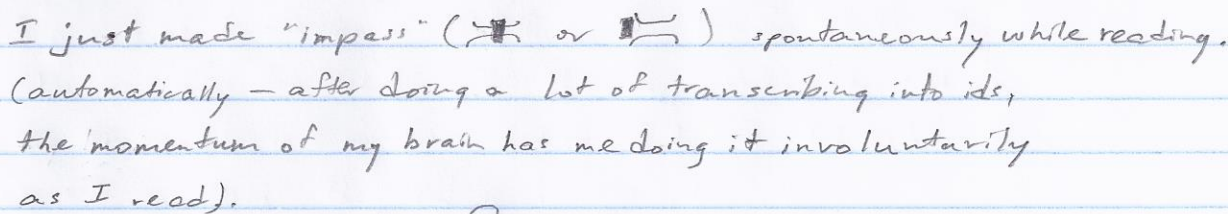 I just made "impass" ( or ) spontaneously while reading.
(automatically — after doing a lot of transcribing into ids,
the momentum of my brain has me doing it involuntarily
as I read).